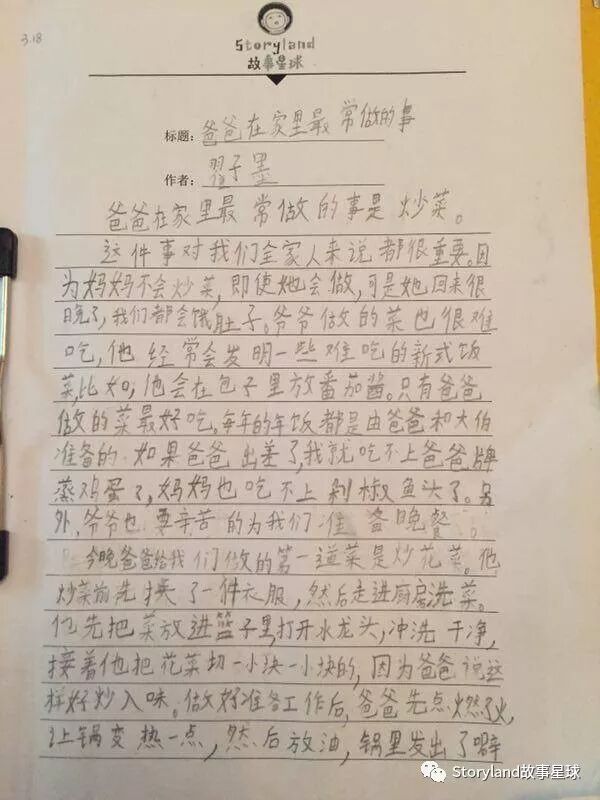 3.18
Storyland
故事星球
标题：爸爸在家里最常做的事
作者：翟子墨
爸爸在家里最常做的事是炒菜。
这件事对我们全家人来说都很重要。因
为妈妈不会炒菜，即使她会做，可是她回来很
晚了，我们都会饿肚子。爷爷做的菜也很难
吃，他经常会发明一些难吃的新式饭
菜，比如，他会在包子里放番茄酱。只有爸爸
做的菜最好吃。每年的年饭都是由爸爸和大伯
准备的。如果爸爸出差了，我就吃不上爸爸牌
蒸鸡蛋了，妈妈也吃不上剁椒鱼头了。另
外，爷爷也要辛苦的为我们准备晚餐。
今晚爸爸给我们做的第一道菜是炒花菜。他
炒菜前先换了一件衣服，然后走进厨房洗菜。
他先把菜放进篮子里，打开水龙头，冲洗干净，
接着他把花菜切一小块一小块的，因为爸爸说这
样好炒入味。做好准备工作后，爸爸先点燃了火，
让锅变热一点，然后放油，锅里发出了噼
Storyland故事星球